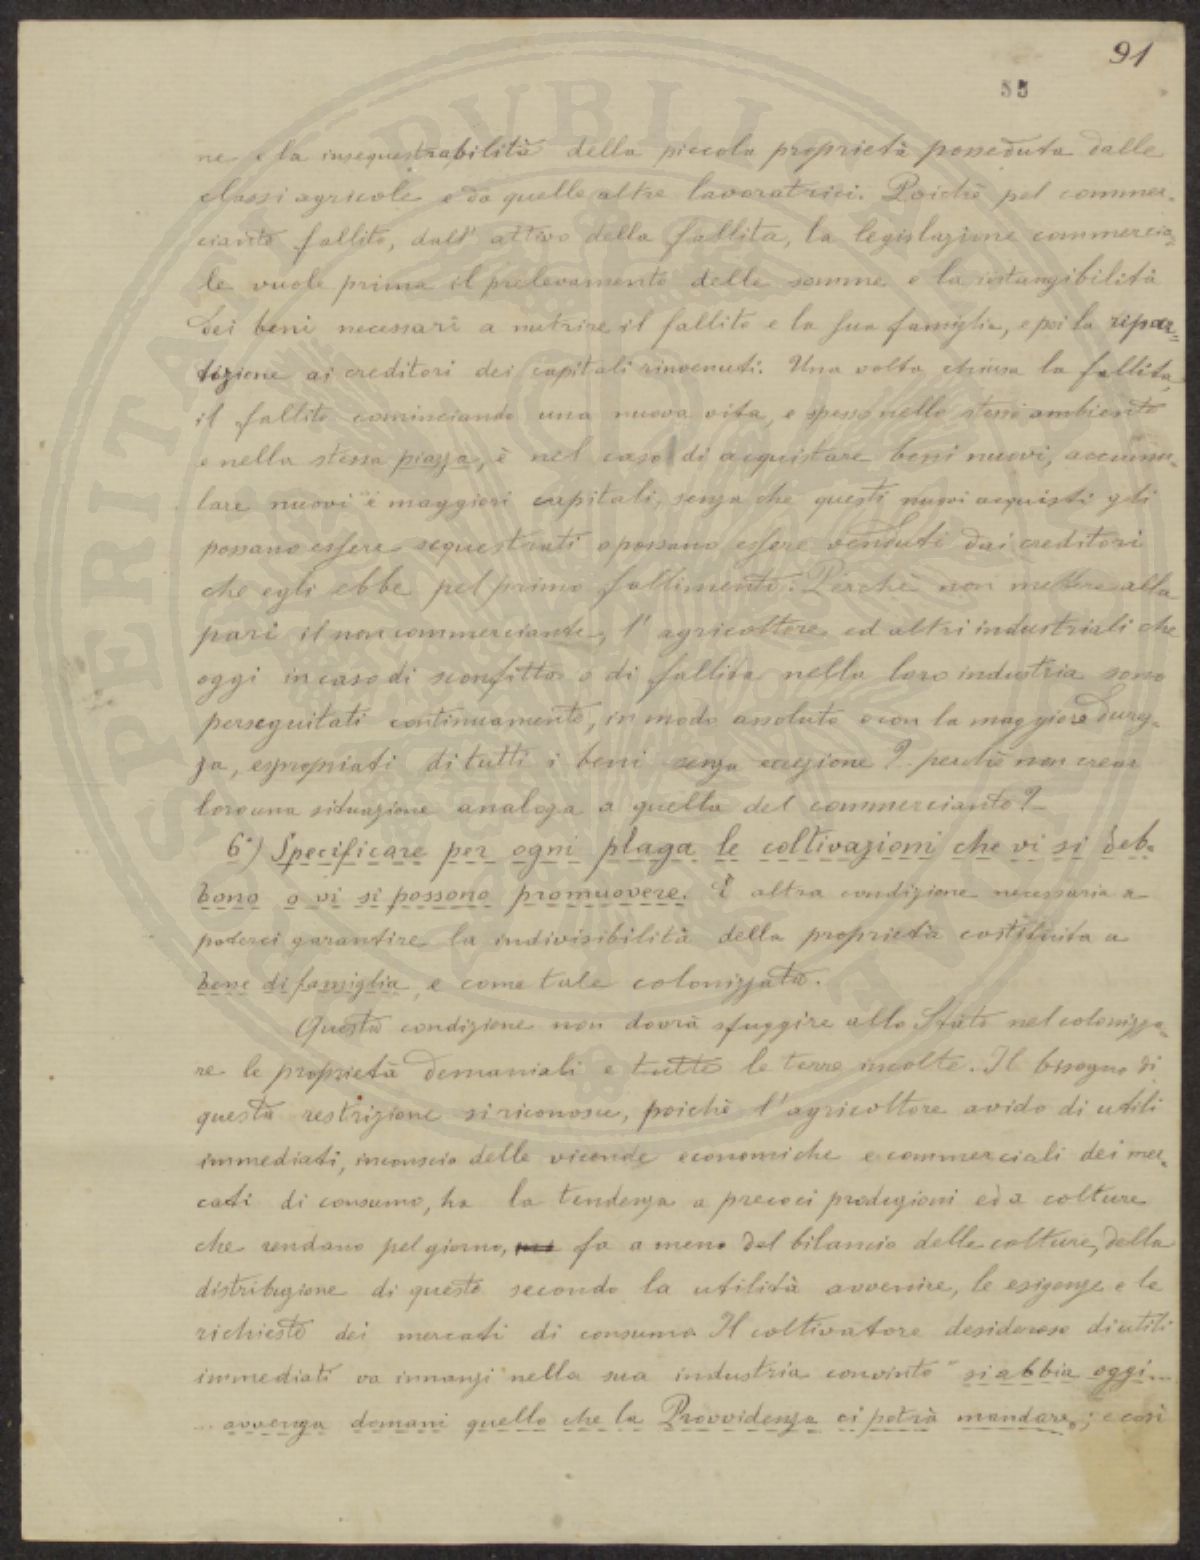 91
55
ne e la insequestrabilità della piccola proprietà posseduta dalle
classi agricole e da quelle altre lavoratrici. Poichè pel commer-
ciante fallito, dall' attivo della fallita, la legislazione commercia-
le vuole prima il prelevamento delle somme e la intangibilità
dei beni necessari a nutrire il fallito e la sua famiglia, e poi la ripar-
tizione ai creditori dei capitali rinvenuti. Una volta chiusa la fallita,
il fallito cominciando una nuova vita, e spesso nello stesso ambiente
e nella stessa piazza, è nel caso di acquistare beni nuovi, accumu-
lare nuovi e maggiori capitali, senza che questi nuovi acquisti gli
possano essere sequestrati o possano essere venduti dai creditori
che egli ebbe pel primo fallimento. Perchè non mettere alla
pari il non commerciante, l' agricoltore ed altri industriali che
oggi in caso di sconfitta o di fallita nella loro industria sono
perseguitati continuamente, in modo assoluto e con la maggiore durez-
za, espropriati di tutti i beni senza eccezione? perchè non crear
loro una situazione analoga a quella del commerciante?
6°) Specificare per ogni plaga le coltivazioni che vi si deb-
bono o vi si possono promuovere. È altra condizione necessaria a
poterci garantire la indivisibilità della proprietà costituita a
bene di famiglia, e come tale colonizzata.
Questa condizione non dovrà sfuggire allo Stato nel colonizza-
re le proprietà demaniali e tutte le terre incolte. Il bisogno di
questa restrizione si riconosce, poichè l' agricoltore avido di utili
immediati, inconscio delle vicende economiche e commerciali dei mer-
cati di consumo, ha la tendenza a precoci produzioni ed a colture
che rendano pel giorno, fa a meno del bilancio delle colture, della
distribuzione di queste secondo la utilità avvenire, le esigenze e le
richieste dei mercati di consumo. Il coltivatore desideroso di utili
immediati va innanzi nella sua industria convinto "si abbia oggi...
... avvenga domani quello che la Provvidenza ci potrà mandare"; e così